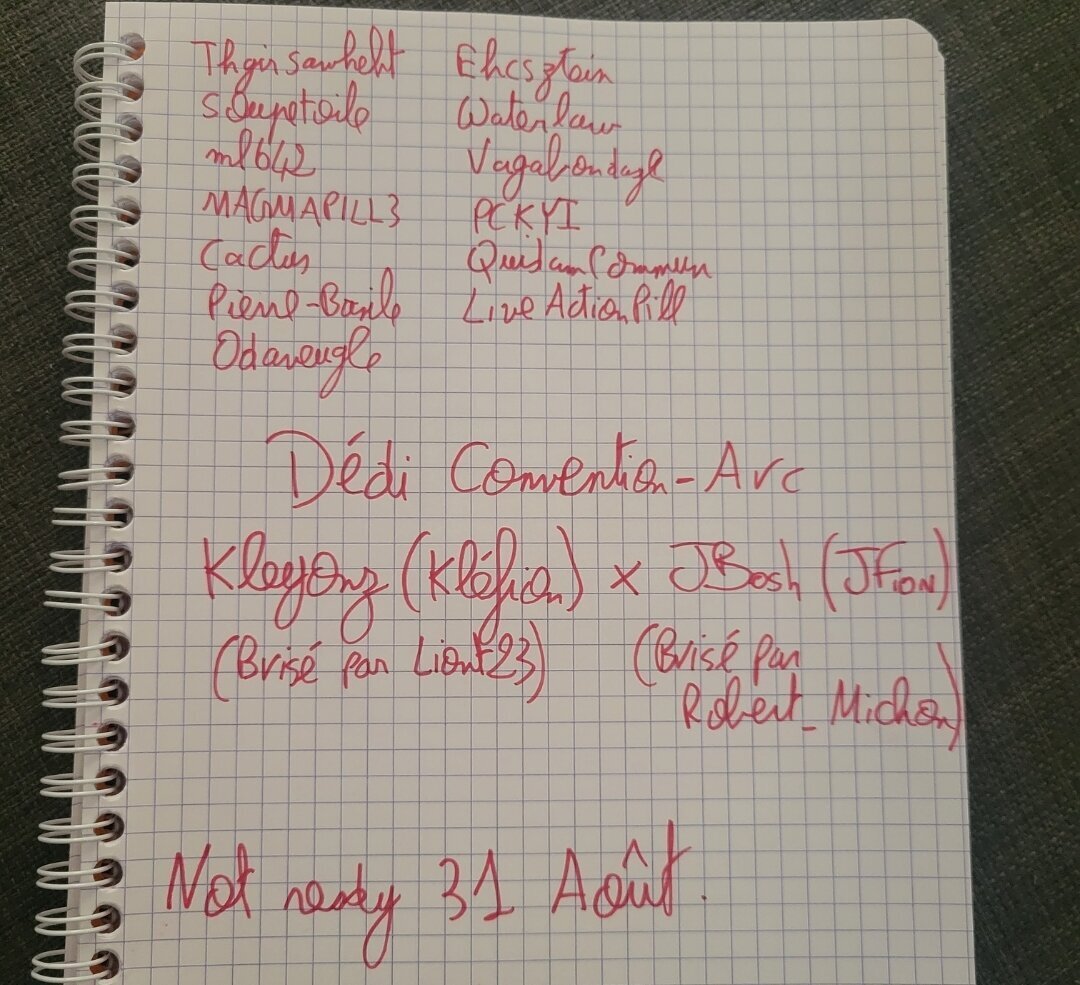 Thgirsawheht
Soupetoile
mlb42
MAGMAPILL3
Cactus
Pierre-Basile
Odaveugle
Ehcsztein
Waterlaw
Vagabondage
PCKYI
QuidamCommun
LiveActionPill
Dédi Convention-Arc
KleyOnz (Kléfion) x JBosh (JFion)
(Brisé par Liont23) (Brisé par
Robert_Michon)
Not ready 31 Août.